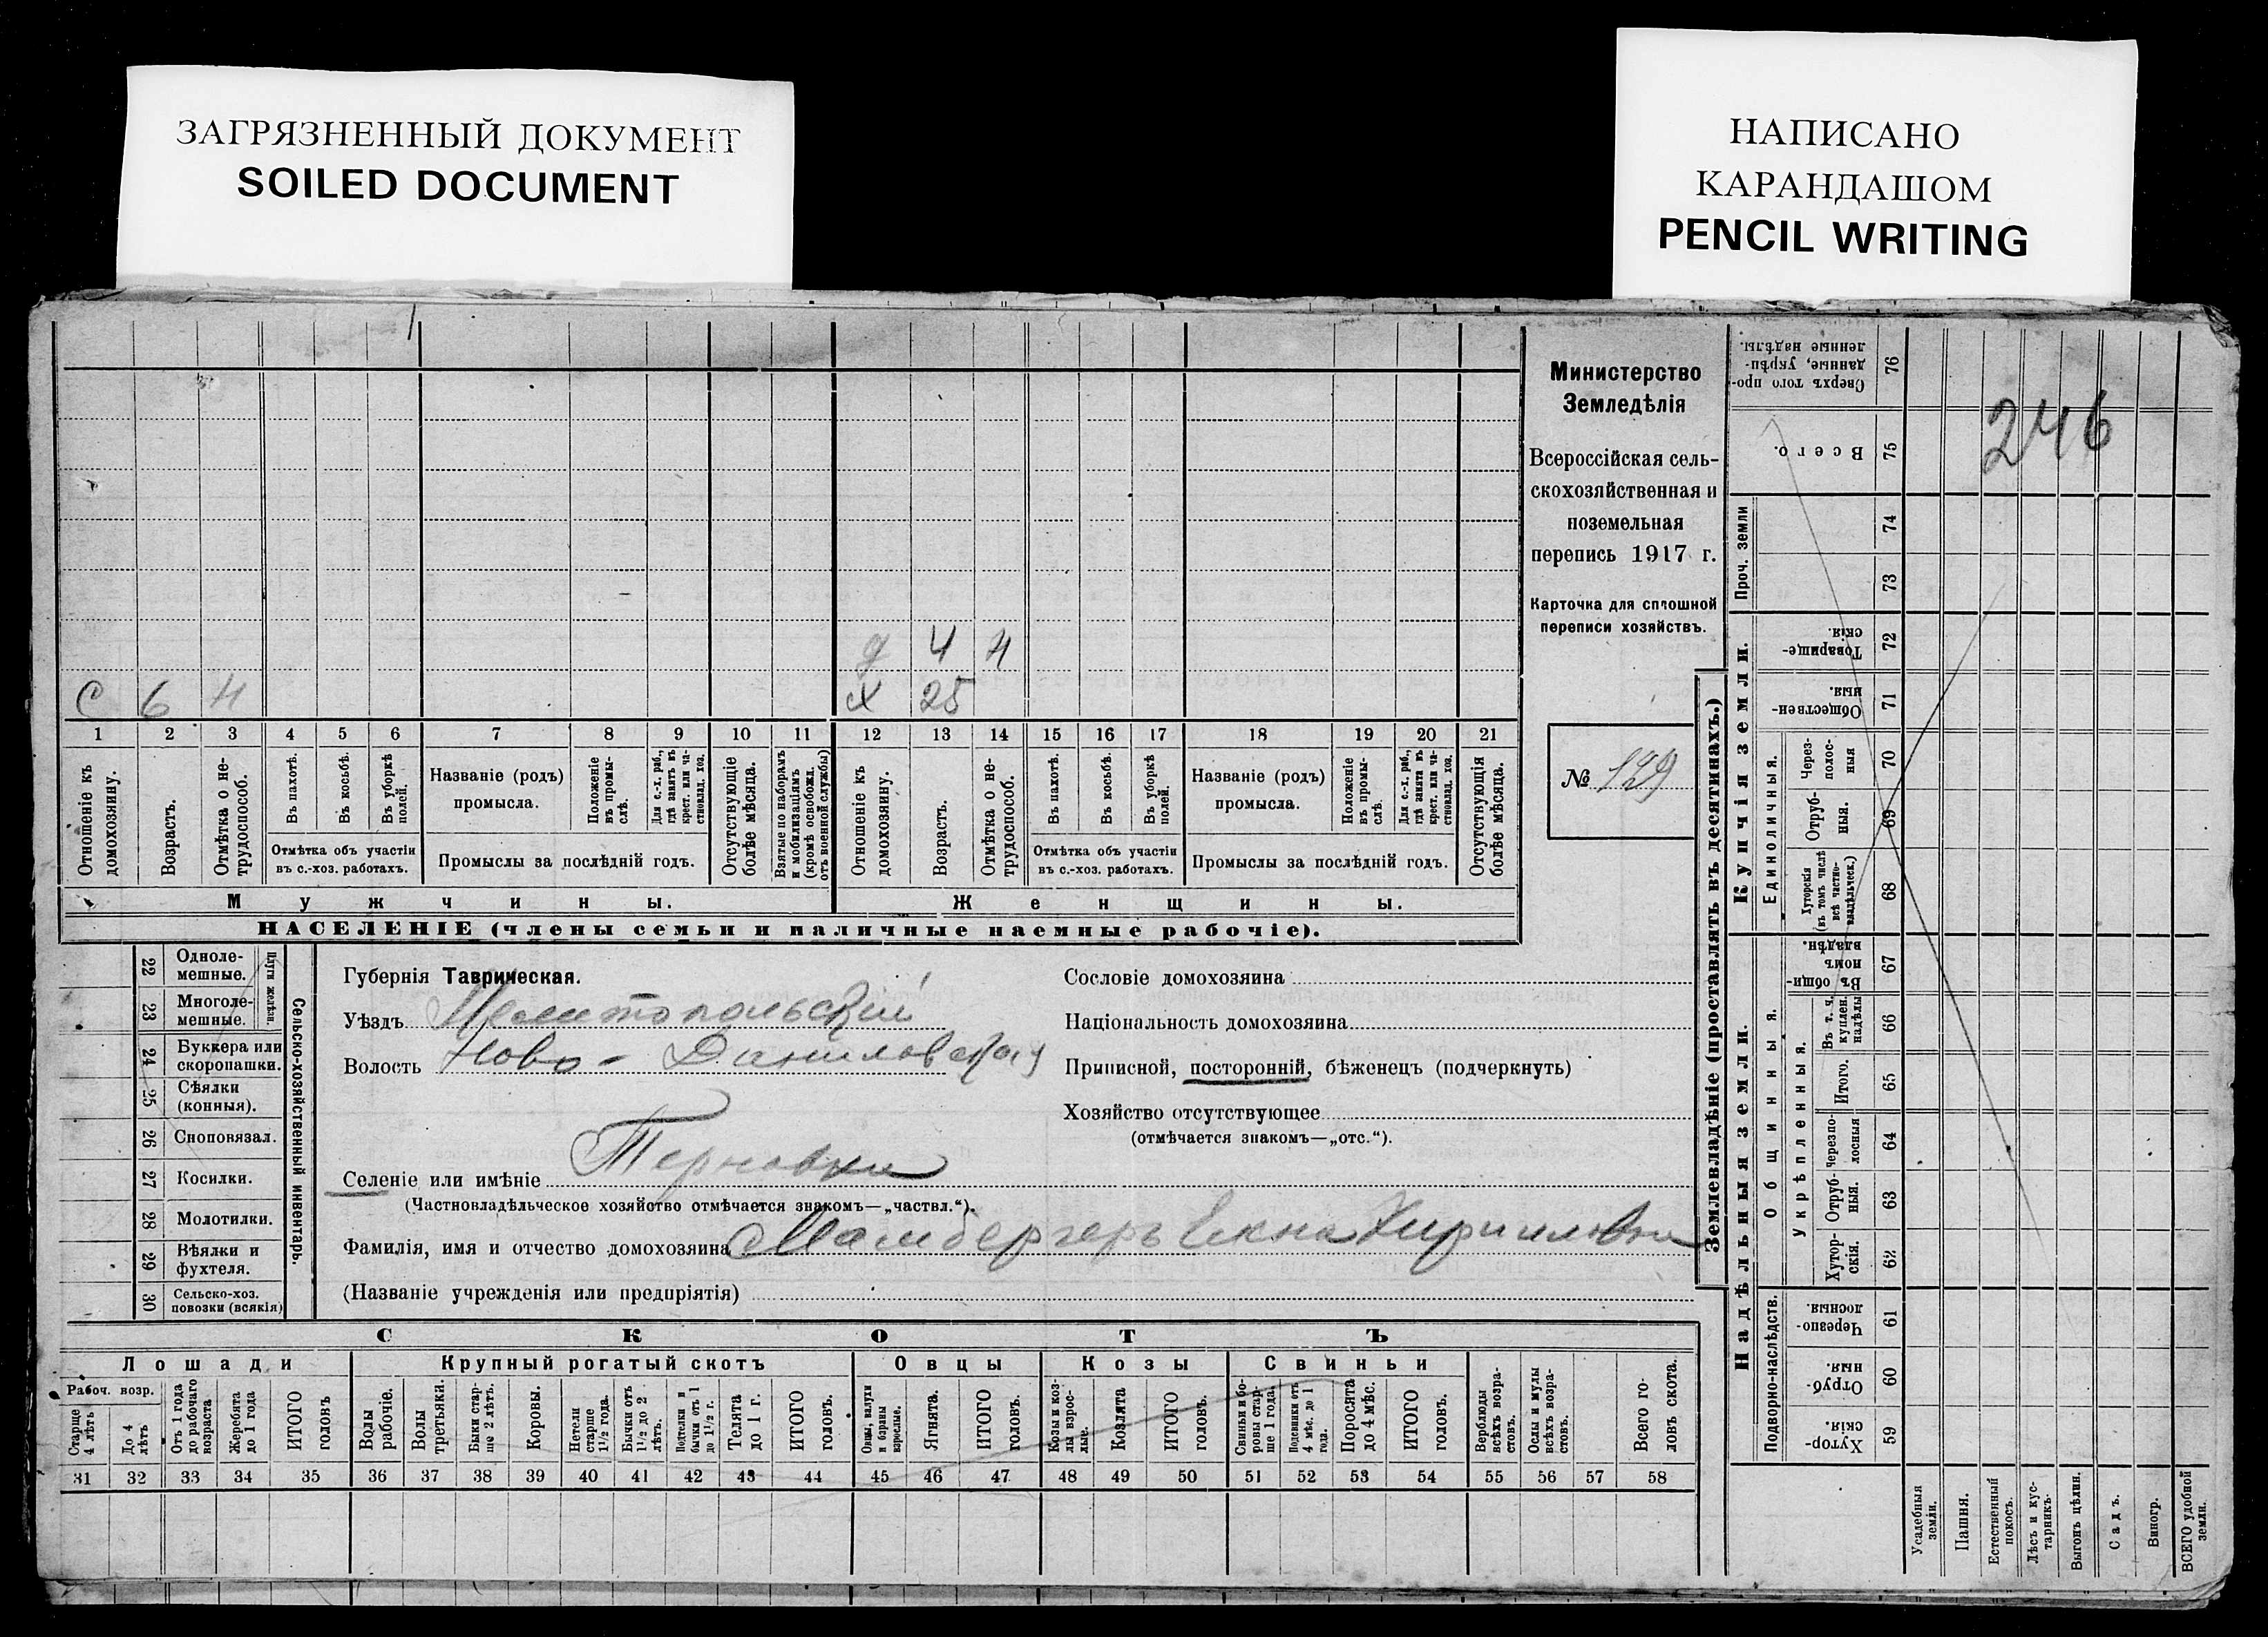 ЗАГРЯЗНЕННЫЙ ДОКУМЕНТ
SOILED DOCUMENT
НАПИСАНО
КАРАНДАШОМ
PENCIL WRITING
246
Министерство
Земледѣлія
Всероссійская сель-
скохозяйственная и
поземельная
перепись 1917 г.
Карточка для сплошной
переписи хозяйствъ.
№ 129
д 4 н
С 6 н
х 25
1 2 3 4 5 6 7 8 9 10 11 12 13 14 15 16 17 18 19 20 21
Отношеніе къ домохозяину.
Возрастъ.
Отмѣтка о не-трудоспособ.
Въ пахотѣ.
Въ косьбѣ.
Въ уборкѣ полей.
Отмѣтка объ участіи
въ с.-хоз. работахъ.
Названіе (родъ)
промысла.
Положеніе въ промы-слѣ.
Для с.-х. раб., гдѣ занятъ въ крест. или ча-стновлад. хоз.
Промыслы за послѣдній годъ.
Отсутствующіе болѣе мѣсяца.
Взятые по наборамъ и мобилизаціямъ (кромѣ освобожд. отъ военной службы)
Отношеніе къ домохозяину.
Возрастъ.
Отмѣтка о не-трудоспособ.
Въ пахотѣ.
Въ косьбѣ.
Въ уборкѣ полей.
Отмѣтка объ участіи
въ с.-хоз. работахъ.
Названіе (родъ)
промысла.
Положеніе въ промы-слѣ.
Для с.-х. раб., гдѣ занята въ крест. или ча-стновлад. хоз.
Промыслы за послѣдній годъ.
Отсутствующія болѣе мѣсяца.
Мужчины.
Женщины.
НАСЕЛЕНІЕ (члены семьи и наличные наемные рабочіе).
Сельско-хозяйственный инвентарь.
Плуги желѣзн.
22 Одноле-мешные.
23 Многоле-мешные.
24 Буккера или скоропашки.
25 Сѣялки (конныя).
26 Сноповязал.
27 Косилки.
28 Молотилки.
29 Вѣялки и фухтеля.
30 Сельско-хоз. повозки (всякія)
Губернія Таврическая.
Уѣздъ Мелитопольскій
Волость Ново-Даниловская
Селеніе или имѣніе Терновка
(Частновладѣльческое хозяйство отмѣчается знакомъ—„частвл.“).
Фамилія, имя и отчество домохозяина Мамбергеръ Екна Кирилловна
(Названіе учрежденія или предпріятія)
Сословіе домохозяина
Національность домохозяина
Приписной, посторонній, бѣженецъ (подчеркнуть)
Хозяйство отсутствующее
(отмѣчается знакомъ—„отс.“).
СКОТЪ
Лошади
Крупный рогатый скотъ
Овцы
Козы
Свиньи
Рабоч. возр.
Старше 4 лѣтъ
До 4 лѣтъ
Отъ 1 года до рабочаго возраста
Жеребята до 1 года
ИТОГО головъ
Волы рабочіе.
Волы третьяки.
Быки стар-ше 2 лѣтъ.
Коровы.
Нетели старше 1½ года.
Бычки отъ 1½ до 2 лѣтъ.
Подтелки и бычки отъ 1 до 1½ г.
Телята до 1 г.
ИТОГО головъ.
Овцы, валухи и бараны взрослые.
Ягнята.
ИТОГО головъ.
Козы и коз-лы взрос-лые.
Козлята
ИТОГО головъ.
Свиньи и бо-ровы стар-ше 1 года.
Подсвинки отъ 4 мѣс. до 1 года.
Поросята до 4 мѣс.
ИТОГО головъ.
Верблюды всѣхъ возра-стовъ.
Ослы и мулы всѣхъ возра-стовъ.
Всего го-ловъ скота.
31 32 33 34 35 36 37 38 39 40 41 42 43 44 45 46 47 48 49 50 51 52 53 54 55 56 57 58
Землевладѣніе (проставлять въ десятинахъ.)
Купчія земли.
Надѣльныя земли.
Сверхъ того про-данные, укрѣп-ленные надѣлы. 76
Всего. 75
Проч. земли
74
73
Товарище-скія. 72
Обществен-ныя. 71
Единоличныя.
Через-полос-ныя 70
Отруб-ныя. 69
Хуторскія (въ томъ числѣ всѣ частно-владѣльческ.) 68
Общинныя.
Въ общин-номъ владѣн. 67
Укрѣпленныя.
Въ т. ч. куплен. надѣлы 66
Итого. 65
Черезпо-лосныя 64
Отруб-ныя. 63
Хутор-скія. 62
Подворно-наслѣдств.
Черезпо-лосныя 61
Отруб-ныя. 60
Хутор-скія. 59
Усадебныя земли.
Пашня.
Естественный покосъ.
Лѣсъ и кус-тарникъ.
Выгонъ цѣлин.
Садъ.
Виногр.
ВСЕГО удобной земли.